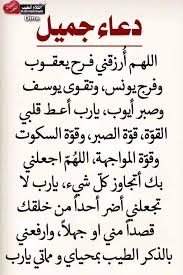 دعاء جميل
اللهم أرزقني فرح يعقوب
وفرج يونس، وتقوى يوسف
وصبر أيوب، يارب أعط قلبي
القوّة، قوّة الصبر، وقوّة السكوت
وقوّة المواجهة، اللهُمّ اجعلني
بك أتجاوز كلّ شيء، يارب لا
تجعلني أضر أحداً من خلقك
قصداً مني او جهلاً، وارفعني
بالذكر الطيب بمحياي و مماتي يارب